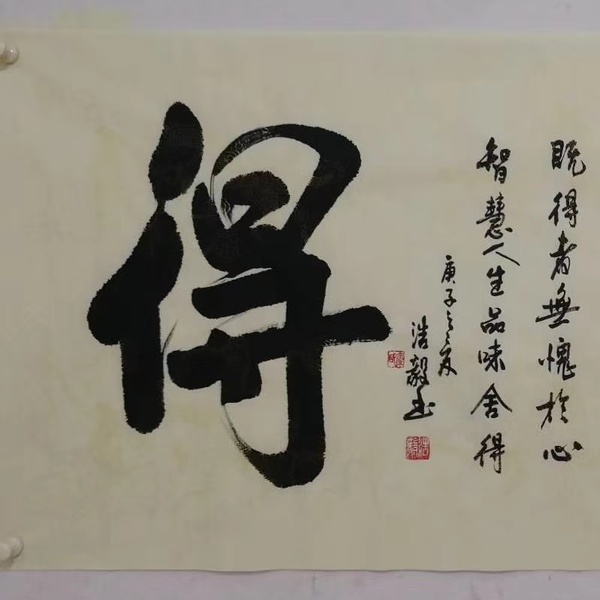 既得者無愧於心
智慧人生品味舍得
庚子之夏
浩毅书
得